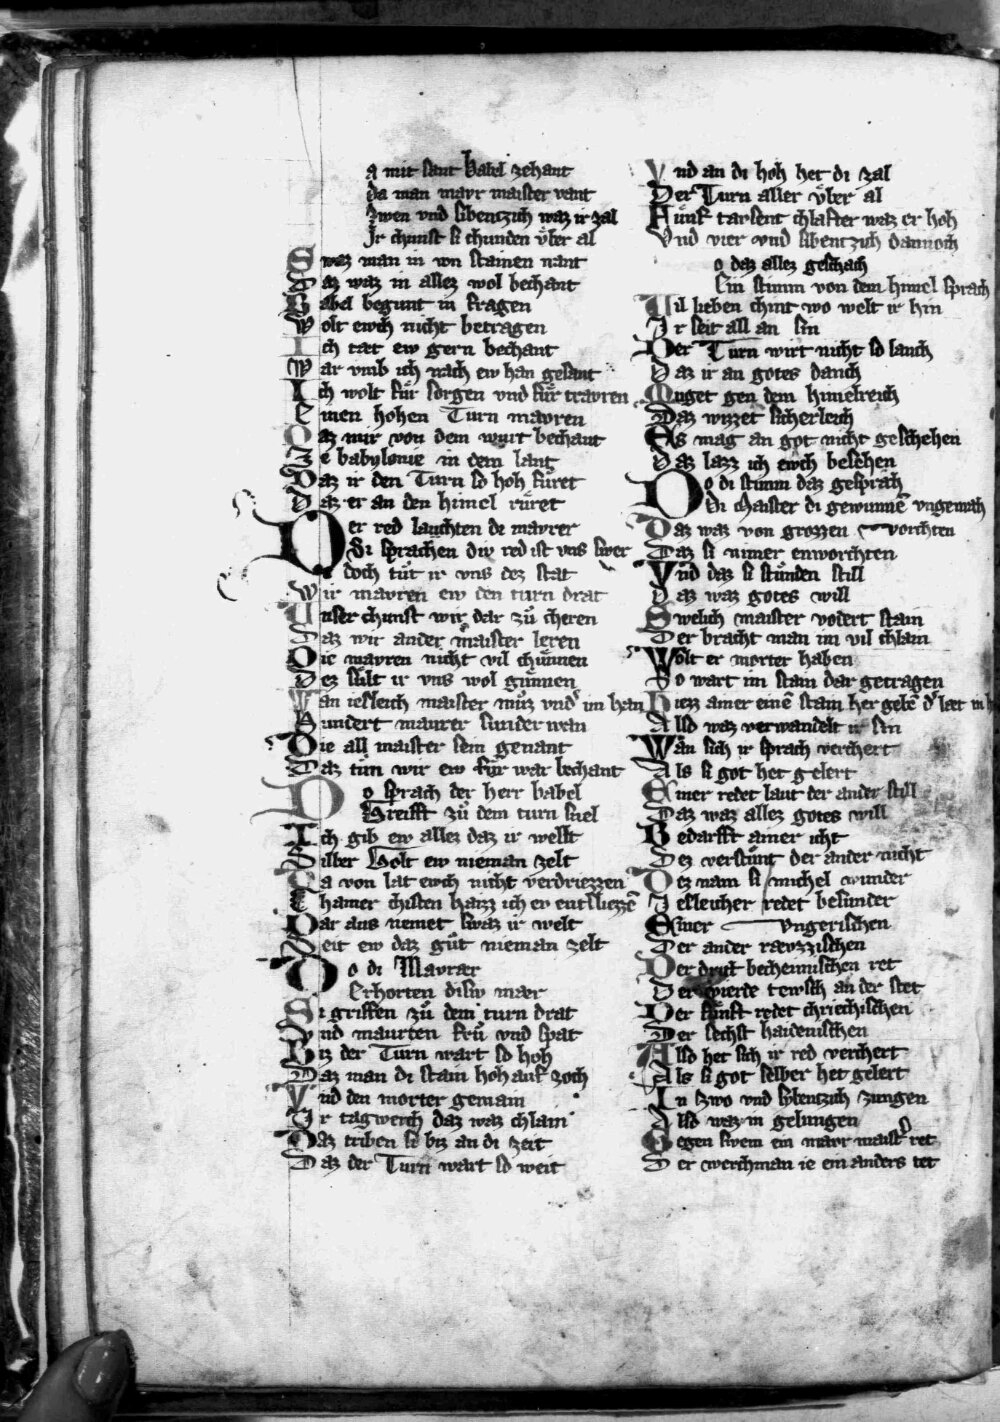 a mit sant Babel zehant
da man mayr maister vant
Zwen vnd sibentzich waz ir zal
Ir chunst si chunden vͤber al
Swaz man in von stainen nant
Daz waz in allez wol bechant
Babel begunt in fragen
Wolt ewch nicht betragen
Ich tæt ew gern bechant
War vmb ich nach ew han gesant
Ich wolt fuͤr sorgen vnd fuͤr travren
Einen hohen Turn mavren
Daz mir von dem wurt bechant
Ze babylonie in dem lant
Daz ir den Turn so hoh fuͤret
Daz er an den himel ruͤret
Der red lauchten de mavrer
Si sprachen div red ist vns swer
doch tuͤt ir vns dez stat
wir mavren ew den turn drat
Vnser chunst wir dar zuͤ cheren
Daz wir ander maister leren
Die mavren nicht vil chuͤnnen
Dez suͤlt ir vns wol guͤnnen
Wan iesleich maister muͦz vnd' im han
Hundert maurer sunder wan
Die all maister sein genant
Daz tuͤn wir ew fuͤr war bechant
Do sprach der herr babel
Greifft zuͤ dem turn snel
Ich gib ew allez daz ir wellt
Silber Golt ew nieman zelt
Da von lat ewch nicht verdriezzen
Chamer chisten haizz ich ew entsliezzē
Dar aus nemet swaz ir welt
Seit ew daz guͤt nieman zelt
Do di Mavrær
Erhorten disiv mær
Si griffen zuͤ dem turn drat
Vnd maurten fruͤ vnd spat
Biz der Turn wart so hoh
Daz man di stain hoh auf zoch
Vnd den morter gemain
Ir tagwerch daz waz chlain
Daz triben si biz an di zeit
Daz der Turn wart so weit
Vnd an di hoh het di zal
Der Turn aller vͤber al
Fuͤnf tavsent chlafter waz er hoh
Vnd vier vnd sibentzich dannoch
o daz allez geschach
Ein stimm von dem himel sprach
Vil lieben chint wo welt ir hin
Ir seit all an sin
Der Turn wirt nicht so lanch
Daz ir an gotes danch
Muget gen dem himelreich
Daz wizzet sicherleich
Es mag an got nicht geschehen
Daz lazz ich ewch besehen
Do di stimm daz gesprach
Di Maister di gewunnē vngemach
Daz waz von grozzen vorchten
Daz si nimer enworchten
Vnd daz si stuͤnden still
Daz waz gotes will
Swelich maister vodert stain
Der bracht man im vil chlain
Wolt er morter haben
So wart im stain dar getragen
Hiezz ainer einē stain her gebē
Also waz verwandelt ir sin
Wan sich ir sprach verchert
Als si got het gelert
Einer redet laut der ander still
Daz waz allez gotes will
Bedarfft ainer icht
Dez verstuͤnt der ander nicht
Dez nam si michel wunder
Iesleicher redet besunder
Einer vngerischen
Der ander ravzzischen
Der drytt bechemischen ret
Der vierde tewsch an der stet
Der fuͤnft redet chriechischen
Der sechst haidenischen
Also het sich ir red verchert
Als si got selber het gelert
In zwo vnd sybentzich zungen
Also waz in gelungen
Gegen swem ein mavr maist' ret
Der werchman ie ein anders tet